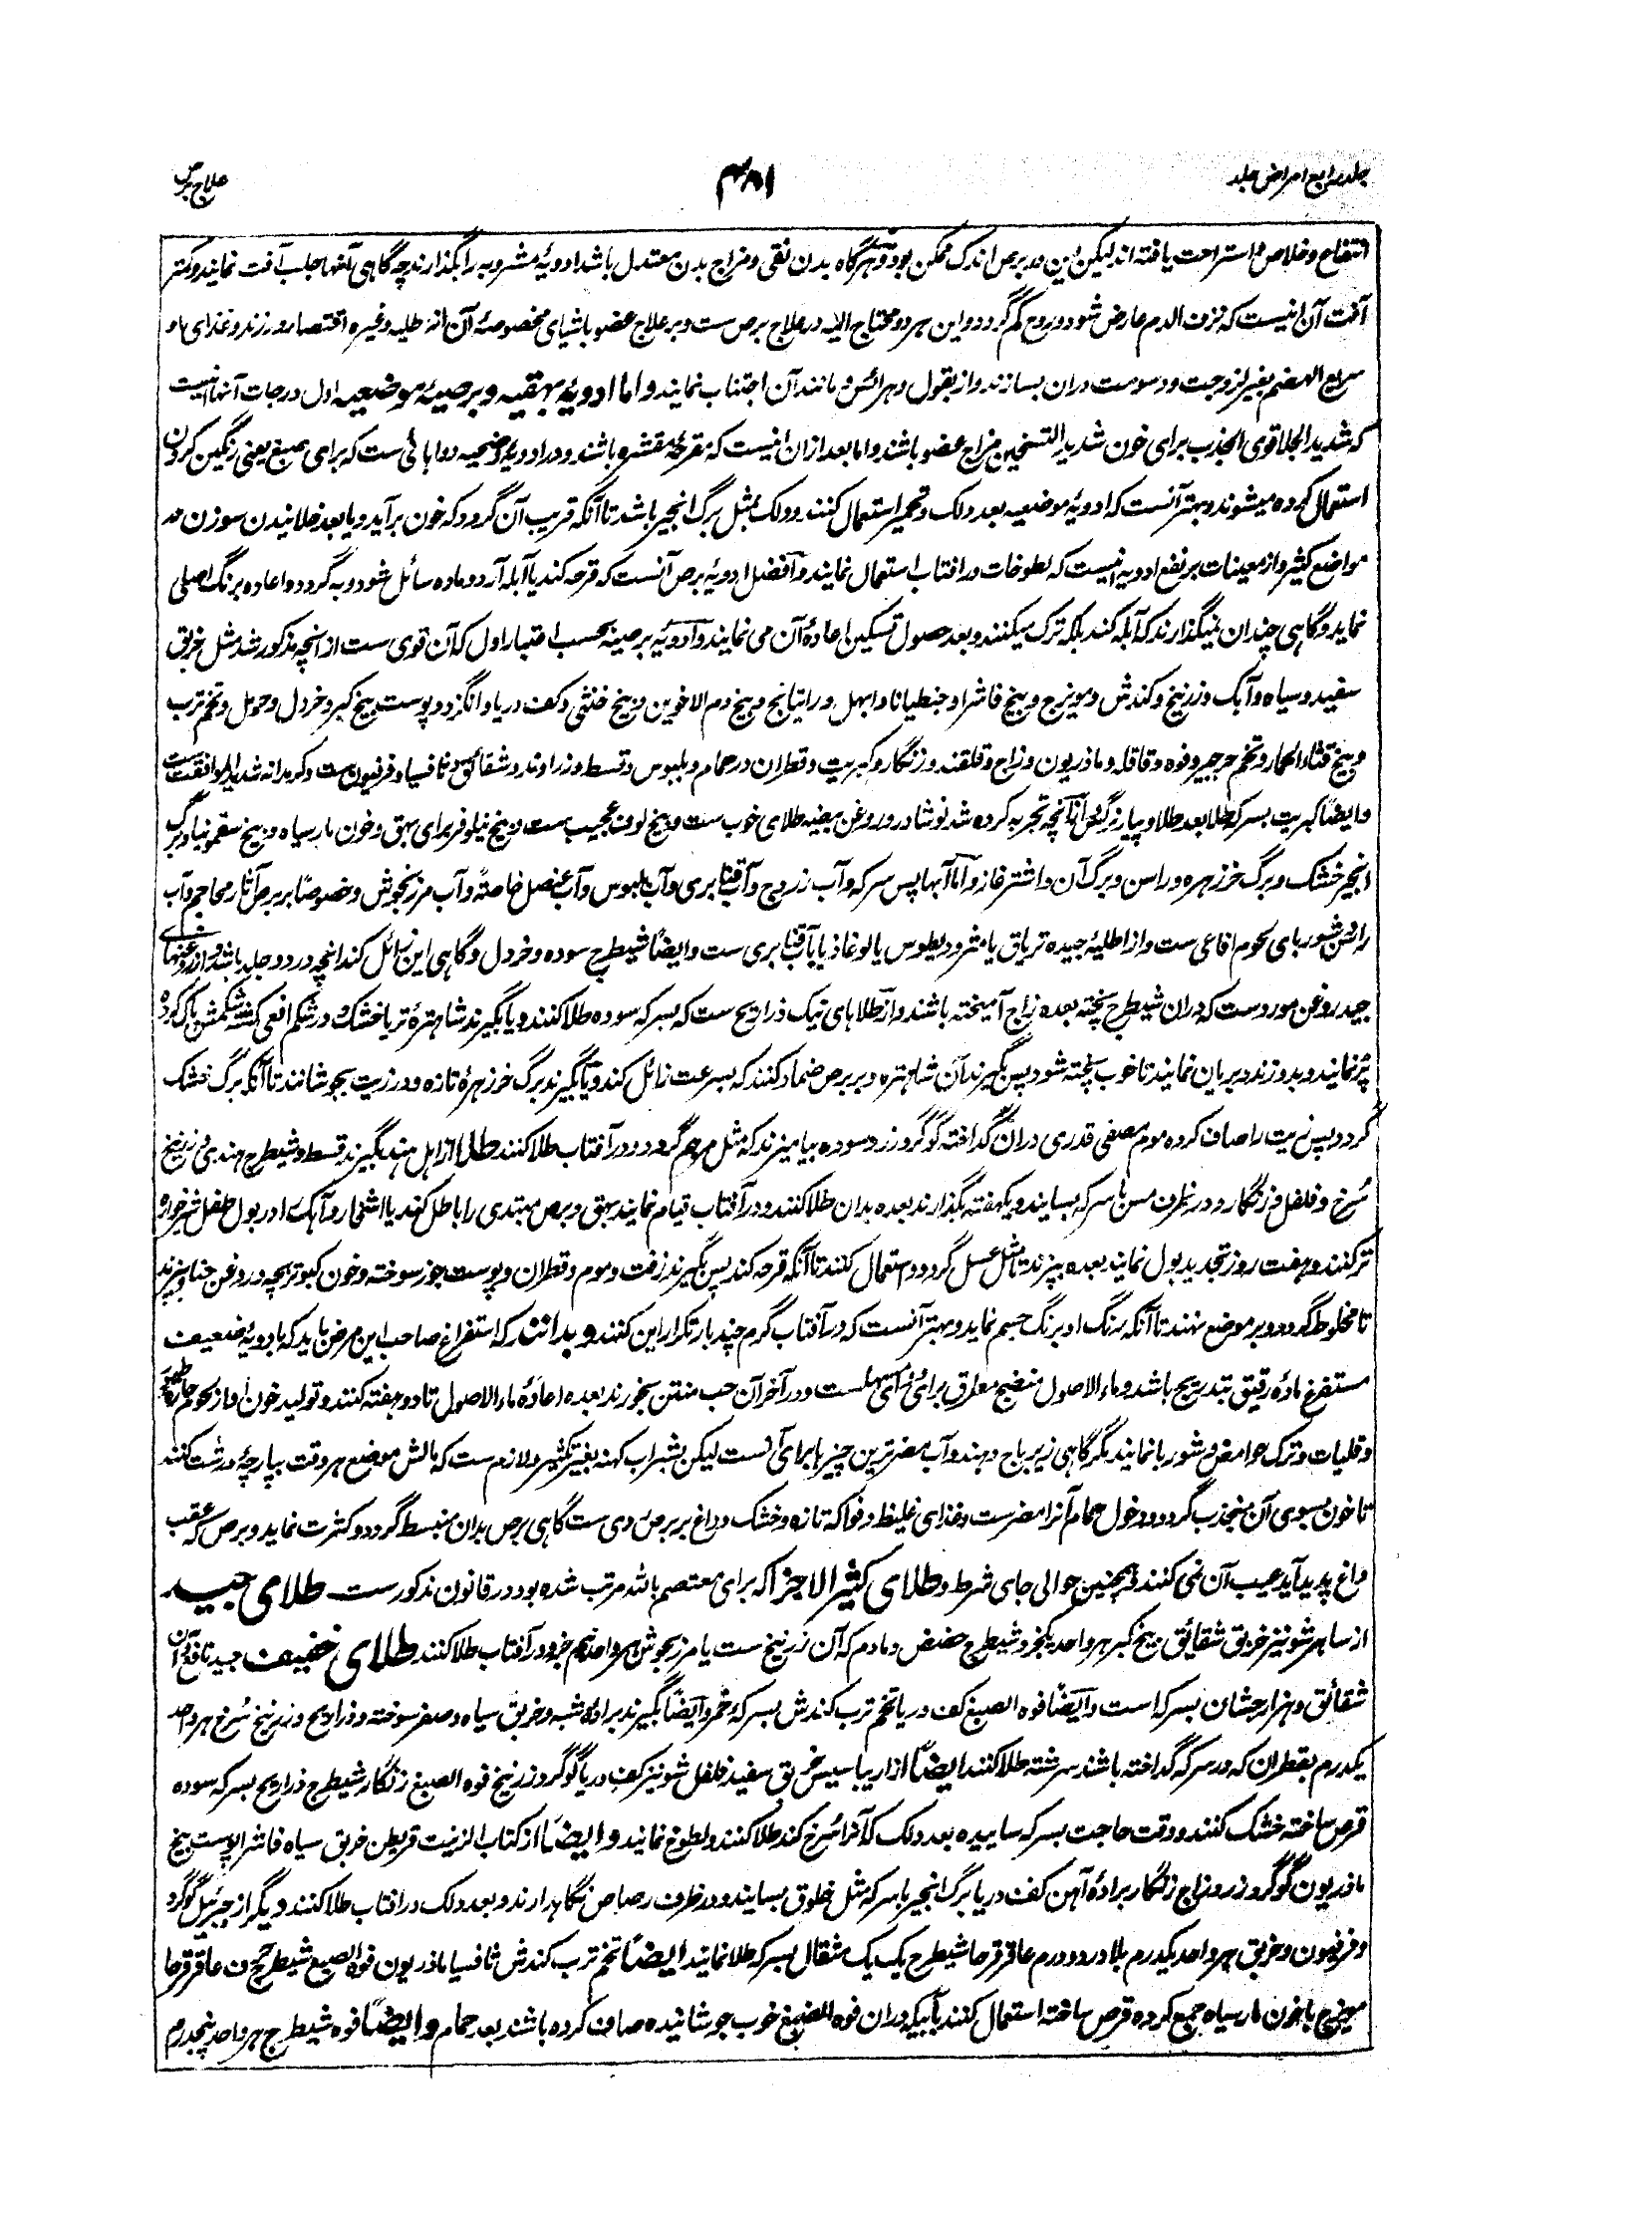 جلد رابع امراض جلد
۴۸۱
علاج برص
انتفاع و خلاص و استراحت یافته اند لیکن این در برص اندک ممکن بود و هرگاه بدن نقی و مزاج بدن معتدل باشد ادویهٔ مشروبه را بگذارند چه گاهی آنها جالب آفت نمایند و کمتر
آفت آن اینست که نزف الدم عارض شود و روح کم گردد و این هر دو محتاج الیه در علاج برص ست و بر علاج عضو باشیای مخصوصهٔ آن از طلیه و غیره اقتصار ورزند و غذای او
سریع الهضم بغیر لزوجت و دسومت دران بسازند و از بقول و هرائس و مانند آن اجتناب نمایند و اما ادویهٔ بهقیه و برصیهٔ موضعیه اول درجات آنها اینست
که شدید الجلا قوی الجذب برای خون شدید التسخین مزاج عضو باشند و اما بعد ازان اینست که مقرحه مقشره باشند و در ادویهٔ وضحیه دواهائی ست که برای صبغ یعنی رنگین کردن
استعمال کرده میشوند و بهتر آنست که ادویهٔ موضعیه بعد دلک و تحمیر استعمال کنند و دلک بمثل برگ انجیر باشد تا آنکه قریب آن گردد که خون برآید و یا بعد خلانیدن سوزن در
مواضع کثیر و از معینات بر نفع ادویه اینست که لطوخات در افتاب استعمال نمایند و افضل ادویهٔ برص آنست که قرحه کند یا آبله آرد و ماده سائل شود و به گردد و اعاده برنگ اصلی
نماید و گاهی چندان نمیگذارند که آبله کند بلکه ترک میکنند و بعد حصول تسکین اعادهٔ آن می نمایند و ادویه برصیه بحسب اختیار اول که آن قوی ست از انچه مذکور شد مثل خربق
سفید و سیاه و آهک و زرنیخ و کندش و مویزج و بیخ فاشرا و جنطیانا و ابهل و راتیانج و بیخ دم الاخوین و بیخ خنثی و کف دریا و انگزد و پوست بیخ کبر و خردل و حرمل و تخم ترب
و بیخ قثاء الحمار و تخم جرجیر و فوه و قاقله و ماذریون و زاج و قلقند و زنگار و کبریت و قطران در حمام و بلبوس و قسط و زراوند و شقائق و ثافسیا و فرفیون ست و کرمدانه شدید الموافقت ست
و ایضاً کبریت بسرکه طلا بعد طلا و پیاز نرگس و از انچه تجربه کرده شد نوشادر و روغن بیضه طلای خوب ست و بیخ لوف عجیب ست و بیخ نیلوفر برای بهق و خون مار سیاه و بیخ سقمونیا و برگ
انجیر خشک و برگ خرزهره و راسن و برگ آن و اشترغاز و اما آبها پس سرکه و آب زردج و آب قثا بری و آب بلبوس و آب عنصل خاصةً و آب مرزنجوش و خصوصاً بر برص آثار محاجم و آب
راسن شوربای لحوم افاعی ست و از اطلیهٔ جیده تریاق یا مثرودیطوس یا لوغاذیا بآب قثا بری ست و ایضاً شیطرج سوده و خردل و گاهی این زائل کند انچه در رو و جلد باشد و از روغنهای
جید روغن مورد ست که دران شیطرج پخته بعده زاج آمیخته باشند و از طلاهای نیک ذراریح ست که بسرکه سوده طلا کنند و یا بگیرند شاهترهٔ تر یا خشک و در شکم افعی کشته شکمش پاک کرده
پر نمایند و بدوزند و بریان نمایند تا خوب پخته شود پس بگیرند آن شاهتره و بر برص ضماد کنند که بسرعت زائل کند و یا بگیرند برگ خرزهرهٔ تازه و در زیت بجوشانند تا آنکه برگ خشک
گردد پس زیت را صاف کرده موم مصفی قدری دران گداخته گوگرد زرد سوده بیامیزند که مثل مرهم گردد و در آفتاب طلا کنند طلا از اهل هند بگیرند قسط و شیطرج هندی و زرنیخ
سرخ و فلفل و زنگار و در ظرف مس با سرکه بسایند و یکهفته بگذارند بعده بدان طلا کنند و در آفتاب قیام نمایند بهق و برص مبتدی را باطل کند یا اشخار و آهک در بول طفل شیرخواره
تر کنند و هفت روز تجدید بول نمایند بعده بپزند تا مثل عسل گردد و استعمال کنند تا آنکه قرحه کند پس بگیرند زفت و موم و قطران و پوست جوز سوخته و خون کبوتر بچه در روغن حنا بپزند
تا مخلوط گردد و بر موضع نهند تا آنکه رنگ او برنگ جسم نماید و بهتر آنست که در آفتاب گرم چند بار تکرار این کنند و بدانند که استفراغ صاحب این مرض باید که بادویهٔ ضعیف
مستفرغ مادهٔ رقیق بتدریج باشد و ماء الاصول منضج مطرق برای مسهلست و در آخر آن حب منتن بخورند بعده اعادهٔ ماء الاصول تا دو هفته کنند و تولید خون او از لحوم حاره
و قلیات و ترک حوامض و شوربا نمایند مگر گاهی زیرباج دهند و آب مضرترین چیزها برای آنست لیکن بشراب کهنه بغیر تکثیر و لازم ست که مالش موضع هر وقت بپارچهٔ درشت کنند
تا خون بسوی آن منجذب گردد و دخول حمام آنرا مضرست و غذای غلیظ و فواکه تازه و خشک و داغ بر برص ردی ست گاهی برص بدان منبسط گردد و کثرت نماید و برص که عقب
داغ پدید آید عیب آن نمی کنند و همچنین حوالی جای شرط و طلای کثیر الاجزا که برای معتصم بالله مرتب شده بود در قانون مذکورست طلای جید
از ساهر شونیز خربق شقائق بیخ کبر هر واحد یکجزو شیطرج حضض و مادم که آن زرنیخ ست یا مرزنجوش هر واحد نیم جزو در آفتاب طلا کنند طلای خفیف جید نافع آن
شقائق و هزارجشان بسرکه است و ایضاً فوه الصبغ کف دریا تخم ترب کندش بسرکهٔ خمر و ایضاً بگیرند برادهٔ شبه و خربق سیاه و صفر سوخته و ذراریح و زرنیخ سرخ هر واحد
یکدرم بقطران که در سرکه گداخته باشند سرشته طلا کنند ایضاً از اریباسیس خربق سفید فلفل شونیز کف دریا گوگرد زرنیخ فوه الصبغ زنگار شیطرج ذراریح بسرکه سوده
قرص ساخته خشک کنند و وقت حاجت بسرکه ساییده بعد دلک که آنرا سرخ کند طلا کنند و لطوخ نمایند و ایضاً از کتاب الزینت قریطن خربق سیاه فاشرا پوست بیخ
ماذریون گوگرد زرد زاج زنگار برادهٔ آهن کف دریا برگ انجیر با سرکه مثل خلوق بسایند و در ظرف رصاص نگاهدارند و بعد دلک در افتاب طلا کنند دیگر از جبرئیل گوگرد
و فرفیون و خربق هر واحد یکدرم بلادر دو درم عاقرقرحا شیطرج یک یک مثقال بسرکه طلا نمایند ایضاً تخم ترب کندش ثافسیا ماذریون فوه الصبغ شیطرج حرف عاقرقرحا
میویزج با خون مار سیاه جمع کرده قرص ساخته استعمال کنند بآبیکه دران فوه الصبغ خوب جوشانیده صاف کرده باشند بعد حمام و ایضاً فوه شیطرج هر واحد پنجدرم